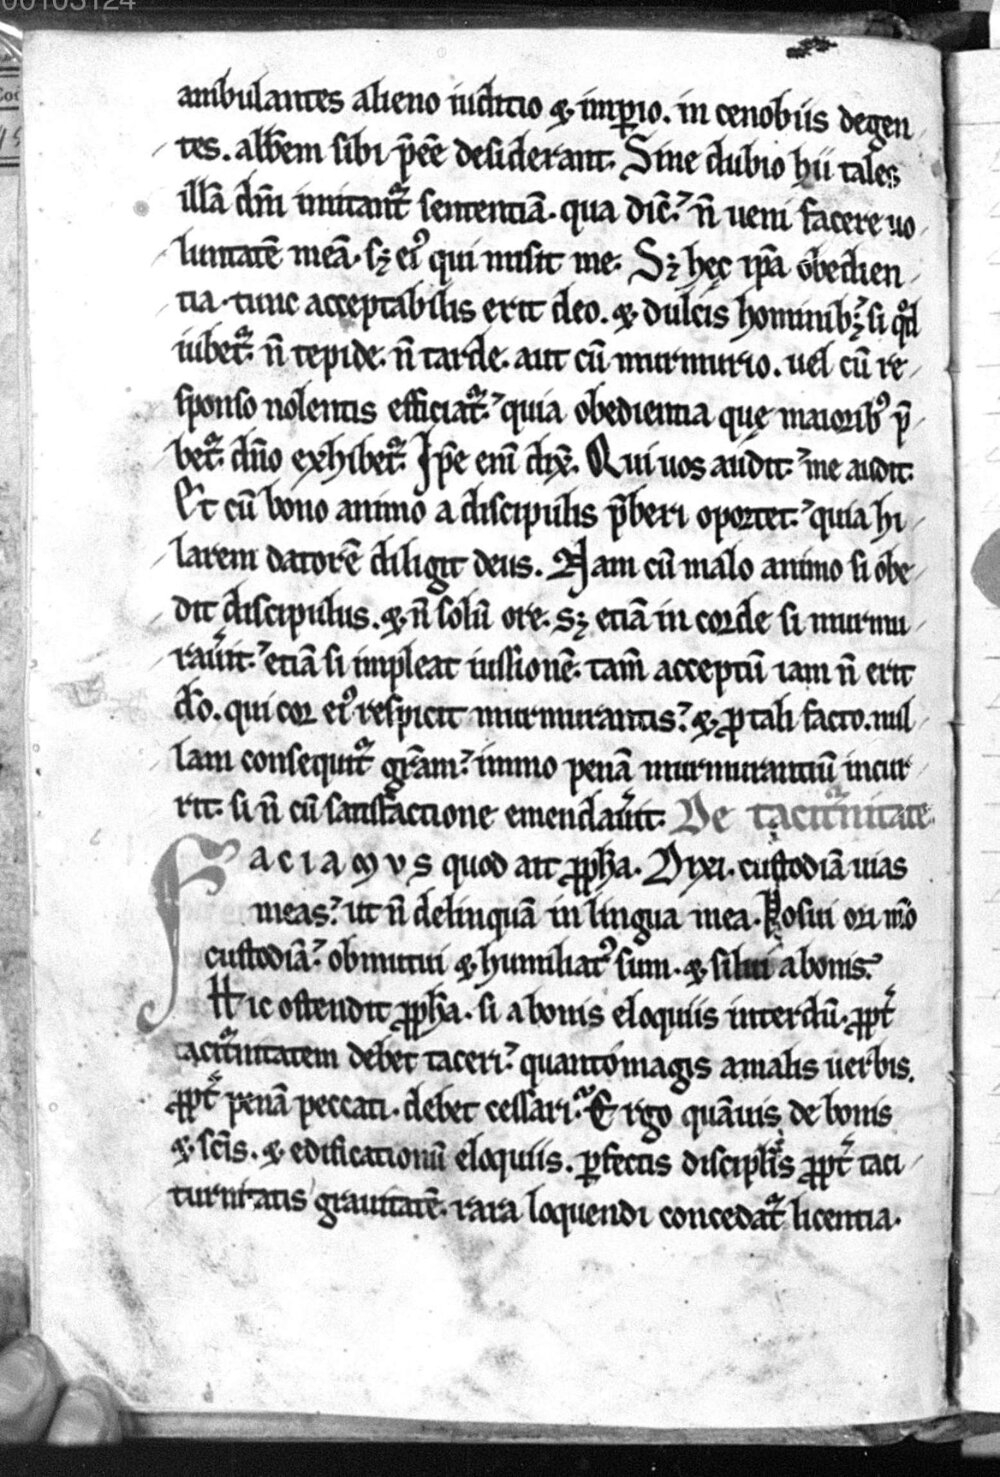 00103124
ambulantes alieno iuditio & imp̲io. in cenobiis degen
tes. abb̄em sibi p̄eē desiderant. Sine dubio hii tales
illā dn̄i imitant᷑ sententiā. qua dic̄. n̄ ueni facere uo
luntatē meā. sꝫ ei᷒ qui misit me. Sꝫ hęc ip̄a obedien
tia. tunc acceptabilis erit deo. & dulcis hominibꝫ si qͦd
iubet᷑. n̄ tepide. n̄ tarde. aut cū murmurio. uel cū re
sponso nolentis efficiat᷑. quia obedientia que maiorib᷒ p̄
bet᷑. dn̄o exhibet᷑. Ip̄e eni᷒ dix̄. Qui uos audit. me audit.
Et cū bono animo a discipulis p̄beri oportet. quia hi
larem datorē diligit deus. Nam cū malo animo si obe
dit discipulus. & n̄ solū ore. sꝫ etiā in corde si murmu
rau̾it. etiā si impleat iussionē. tam̄ acceptū iam n̄ erit
d̄o. qui cor ei᷒ respicit murmurantis. & ꝓ tali facto. nul
lam consequit᷑ gr̄am. immo penā murmurantiū incur
rit. si n̄ cū satisfactione emendau̾it. De tacit̾nitate.
Faciamvs quod ait ꝓph̄a. Dixi. custodiā uias
meas. ut n̄ delinquā in lingua mea. Posui ori m̄o
custodiā. obmutui & humiliat᷒ sum. & silui a bonis.
Hic ostendit ꝓph̄a. si a bonis eloquiis interdū. ꝓpt̾
tacit̾nitatem debet taceri. quanto magis a malis uerbis.
ꝓpt̾ penā peccati. debet cessari. Ergo quāuis de bonis
& sc̄is. & edificationū eloquiis. ꝑfectis discipl̄is ꝓpt̾ taci
turnitatis grauitatē. rara loquendi concedat᷑ licentia.